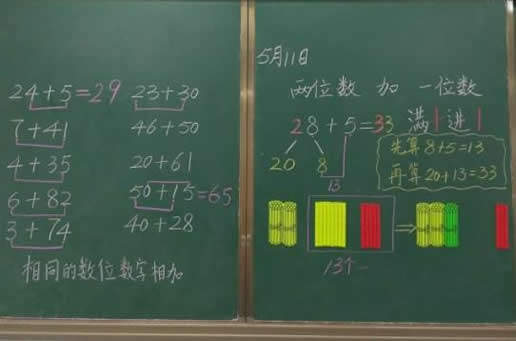 24+5=29 23+30
7+41 46+50
4+35 20+61
6+82 50+15=65
3+74 40+28
相同的数位数字相加
5月11日
两位数 加 一位数
28+5=33 满 1 进 1
20 8
13
先算8+5=13
再算20+13=33
13个一